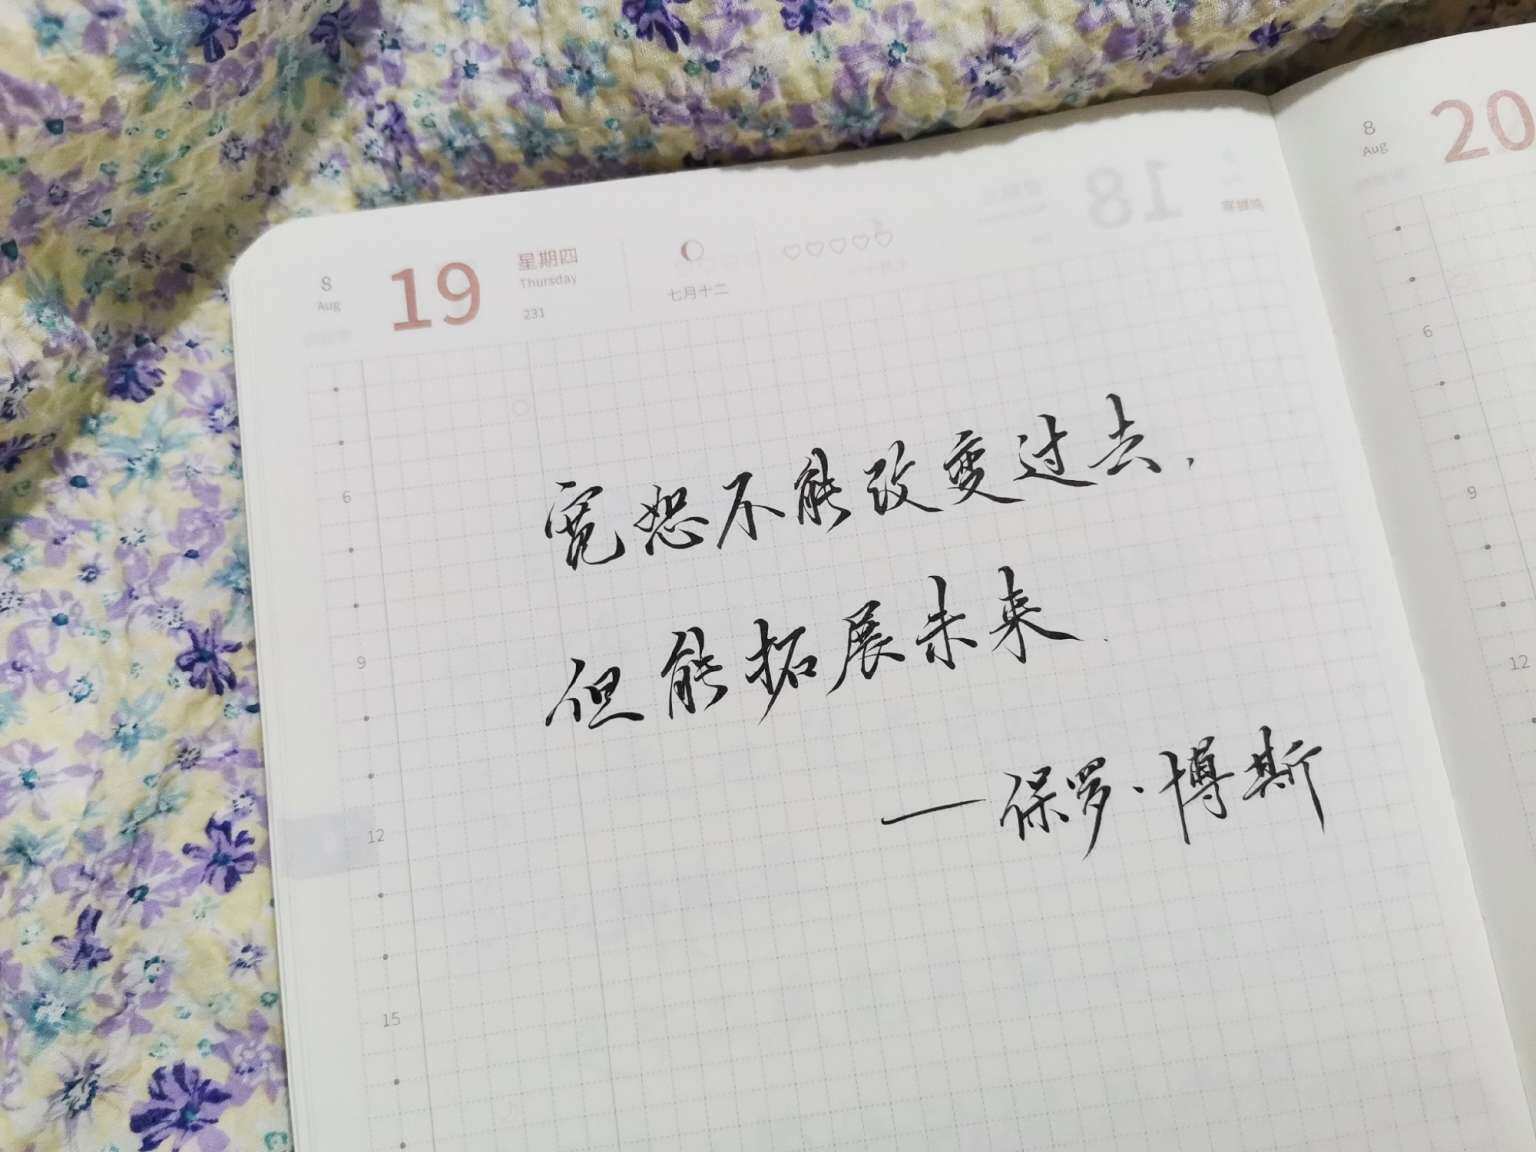 8
Aug
19
星期四
Thursday
231
七月十二
18
8
Aug
20
宽恕不能改变过去,
但能拓展未来.
——保罗·博斯
6
9
12
15
6
9
12